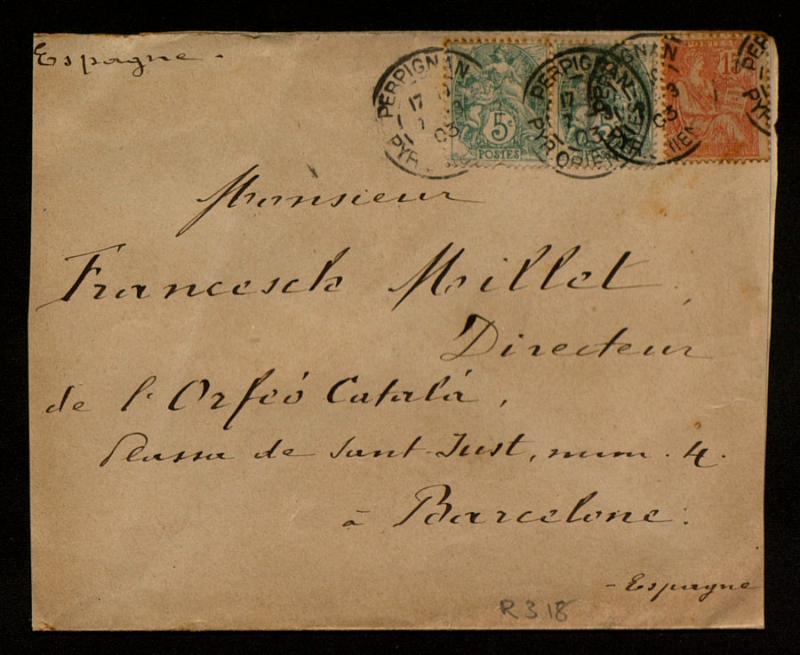 Espagne.
PERPIGNAN
17
1
03
PYR
5c
POSTES
PERPIGNAN
17
03
PYR. ORIEN
15
Monsieur
Francesch Millet
Directeur
de l'Orfeó Catalá,
Plassa de Sant Just, num. 4.
à Barcelone.
- Espagne
R 318